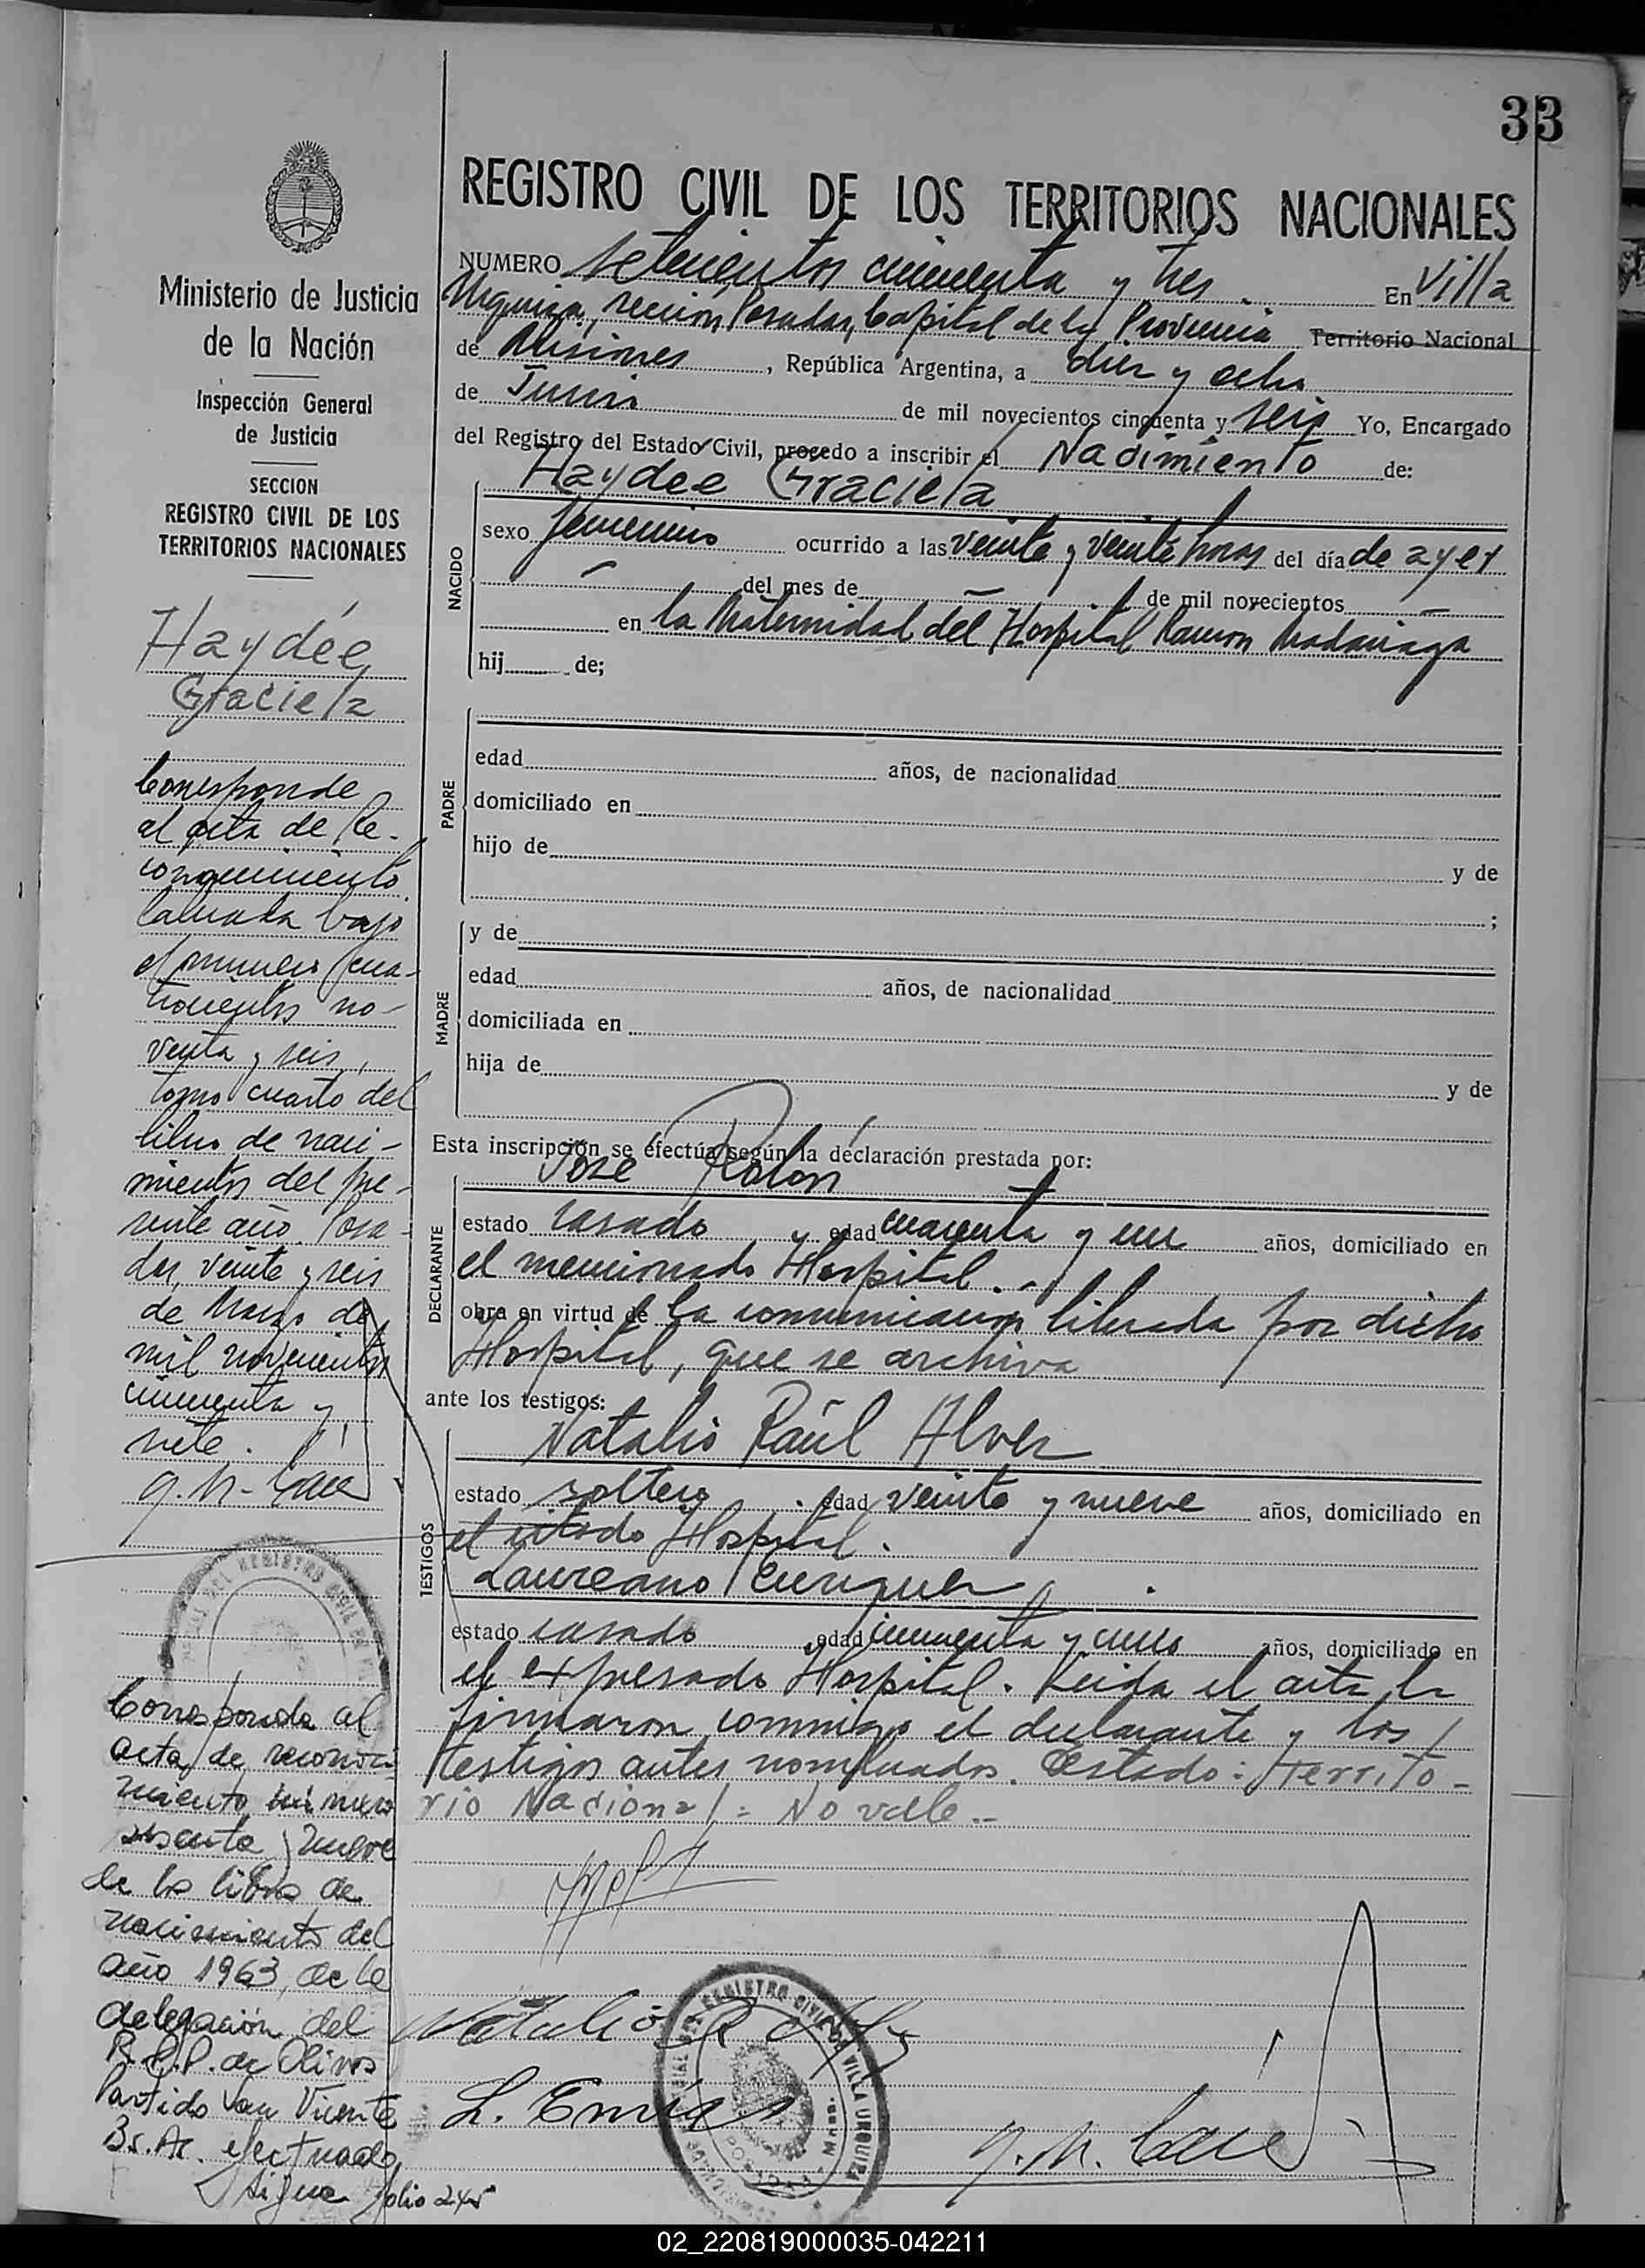 33
REGISTRO CIVIL DE LOS TERRITORIOS NACIONALES
NUMERO setecientos cincuenta y tres. En Villa
Urquiza, sección Posadas, Capital de la Provincia Territorio Nacional
de Misiones, República Argentina, a diez y ocho
de Junio de mil novecientos cincuenta y seis Yo, Encargado
del Registro del Estado Civil, procedo a inscribir el Nacimiento de:
NACIDO
Haydee Graciela
sexo femenino ocurrido a las veinte y veinte horas del día de ayer
del mes de de mil novecientos
en la Maternidad del Hospital Ramon Madariaga
hij de;
PADRE
edad años, de nacionalidad
domiciliado en
hijo de
y de
;
MADRE
y de
edad años, de nacionalidad
domiciliada en
hija de
y de
Esta inscripción se efectúa según la declaración prestada por:
DECLARANTE
Jose Rolon
estado casado y edad cuarenta y un años, domiciliado en
el mencionado Hospital.-
obra en virtud de la comunicacion librada por dicho
Hospital, que se archiva
ante los testigos:
TESTIGOS
Natalio Raúl Alvez
estado soltero. edad veinte y nueve años, domiciliado en
el citado Hospital.
Laureano
estado casado edad cincuenta y cinco años, domiciliado en
el expresado Hospital. Leida el acta, la
firmaron conmigo el declarante y los
testigos antes nombrados. Testado: Territo-
rio Nacional: No vale.-
Natalio R
L.
G. N.
Ministerio de Justicia
de la Nación
Inspección General
de Justicia
SECCION
REGISTRO CIVIL DE LOS
TERRITORIOS NACIONALES
Haydée
Graciela
Corresponde
al acta de Re-
conocimiento
labrada bajo
el numero cua-
trocientos no-
venta y seis,
tomo cuarto del
libro de naci-
mientos del pre-
sente año. Posa-
das, veinte y seis
de Marzo de
mil novecientos
cincuenta y
siete.
G. N.
Corresponde al
acta de reconoci-
miento numero
sesenta y nueve
de los libros de
nacimiento del
año 1963, de la
delegación del
R.C.P. de Olivos
Partido San Vicente
Bs. As. efectuado
Sigue folio 245
REGISTRO CIVIL DE VILLA URQUIZA
POSADAS - Mnes.
02_220819000035-042211